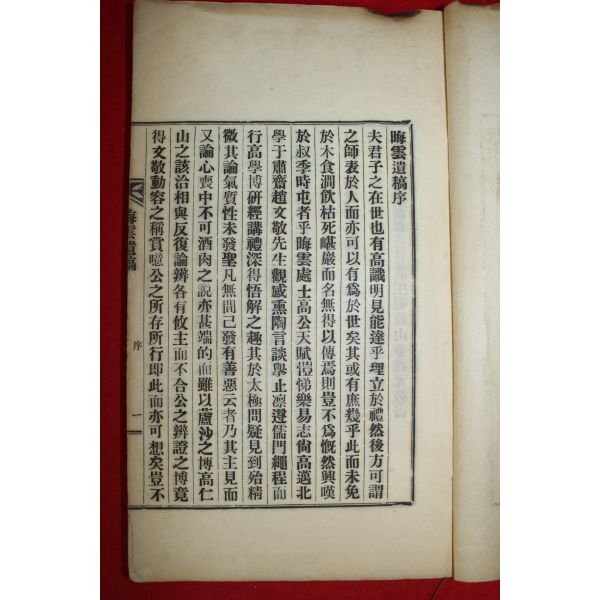 晦雲遺稿序
夫君子之在世也有高識明見能達乎理立於禮然後方可謂
之師表於人而亦可以有爲於世矣其或有庶幾乎此而未免
於木食澗飮枯死嵁巖而名無得以傳焉則豈不爲慨然興嘆
於叔季時屯者乎晦雲處士高公天賦愷悌樂易志尙高邁北
學于肅齋趙文敬先生觀感熏陶言談擧止凛遵儒門繩程而
行高學博硏經講禮深得悟解之趣其於太極問疑見到殆精
微其論氣質性未發聖凡無間已發有善惡云者乃其主見而
又論心喪中不可酒肉之說亦甚端的而雖以蘆沙之博高仁
山之該洽相與反復論辨各有攸主而不合公之辨證之博竟
得文敬動容之稱賞噫公之所存所行卽此而亦可想矣豈不
晦雲遺稿
序
一